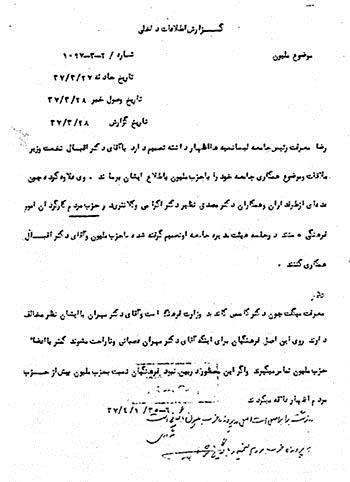 گزارش اطلاعات داخلی
موضوع ملیون
شماره / ۲-۳-۱۰۹۷
تاریخ حادثه ۳۷/۳/۲۷
تاریخ وصول خبر ۳۷/۳/۲۸
تاریخ گزارش ۳۷/۳/۲۸
رضا معرفت رئیس جامعه لیسانسیه ها اظهار داشته تصمیم دارد باآقای دکتر اقبال نخست وزیر
ملاقات وموضوع همکاری جامعه خود را باحزب ملیون باطلاع ایشان برساند . وی علاوه کرده چون
عده ای ازطرفداران وهمکاران دکتر مصدق نظیر دکتر وکلانتری و حزب مردم کارگردان امور
فرهنگی هستند در جلسه هیئت مدیره جامعه تصمیم گرفته شده باحزب ملیون وآقای دکتر اقبال
همکاری کنند .
معرفت میگفت چون دکتر کاندید وزارت فرهنگ است وآقای دکتر مهران باایشان نظر مخالف
دارند روی این اصل فرهنگیان برای اینکه آقای دکتر مهران عصبانی وناراحت نشوند کمتر باعضاء
حزب ملیون تماس میگیرند واگر این محظور در بین نبود فرهنگیان نسبت بحزب ملیون بیش از حزب
مردم اظهار علاقه میکردند
۳۷/۴/۱